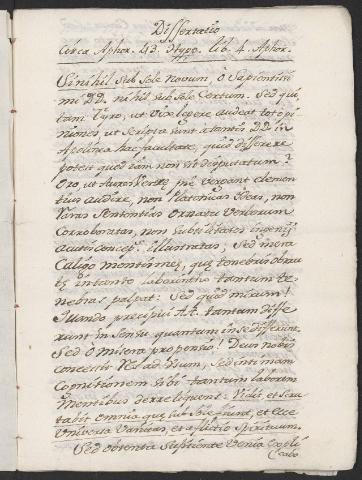 Dissertatio
circa Aphor. 43. Hypp. lib. 4. Aphor.
Si nihil sub sole novum, ô Sapientissi
mi DD. nihil sub sole Certum. Sed qui
tam Tyro, ut vix legere audeat tot opi
niones, ut scripta sunt a tantis DD. in
Apolinea hac facultate, quid differere
poterit quod iam non sit disputatum?
Oro, ut aures vestræ me
audire, non Platonicas Ideas, non
varas sententias ornatu verborum
corroboratas, non subtilitates ingenij
acutis concept. illustratas, sed mera
Caligo mentis meæ, quæ tenebris obru
ta in tanto labarintho tantum te
nebras palpat: Sed quid mirum!
Quando præcipui AA. tantum diffe
runt in sensu quantum in se differunt.
Sed ô misera propensio! Deus nobis
concessit res ad usum, sed intimam
Cognitionem sibi tantum laborem
mentibus derreliquent. Vidit, et scru
tabit omnia quæ sub sole fiunt, et ecce
Universa Vanitas, et aflictio spirituum.
Sed obtenta sufitiente venia expli
cabo